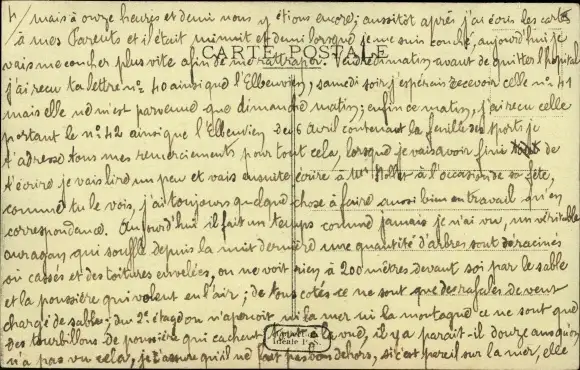 4/ mais à onze heures et demi nous y étions encore; aussitôt après j'ai écris les cartes
à mes Parents et il était minuit et demi lorsque je me suis couché, aujourd'hui je
CARTE POSTALE
vais me coucher plus vite afin de me rattraper. Vendredi matin avant de quitter l'hôpital
j'ai reçu ta lettre nº 40 ainsi que l'Elbeuvien, samedi soir j'espérais recevoir celle nº 41
mais elle ne m'est parvenue que dimanche matin; enfin ce matin, j'ai reçu celle
portant le nº 42 ainsi que l'Elbeuvien du 6 avril contenant la feuille des sports je
t'adresse tous mes remerciements pour tout cela, lorsque je vais avoir fini de
t'écrire je vais lire un peu et vais ensuite écrire à à l'occasion de sa fête,
comme tu le vois, j'ai toujours quelque chose à faire aussi bien en travail qu'en
correspondance. Aujourd'hui il fait un temps comme jamais je n'ai vu, un véritable
ouragan qui souffle depuis la nuit dernière une quantité d'arbres sont déracinés
ou cassés et des toitures envolées, on ne voit rien à 200 mètres devant soi par le sable
et la poussière qui volent en l'air; de tous cotés ce ne sont que des rafales de vent
chargé de sable; du 2e étage on n'aperçoit ni la mer ni la montagne ce ne sont que
des tourbillons de poussière qui cachent toute la vue, il y a parait-il douze ans qu'on
Idéale P.S.
n'a pas vu cela, je t'assure qu'il ne fait pas bon dehors, si c'est pareil sur la mer, elle